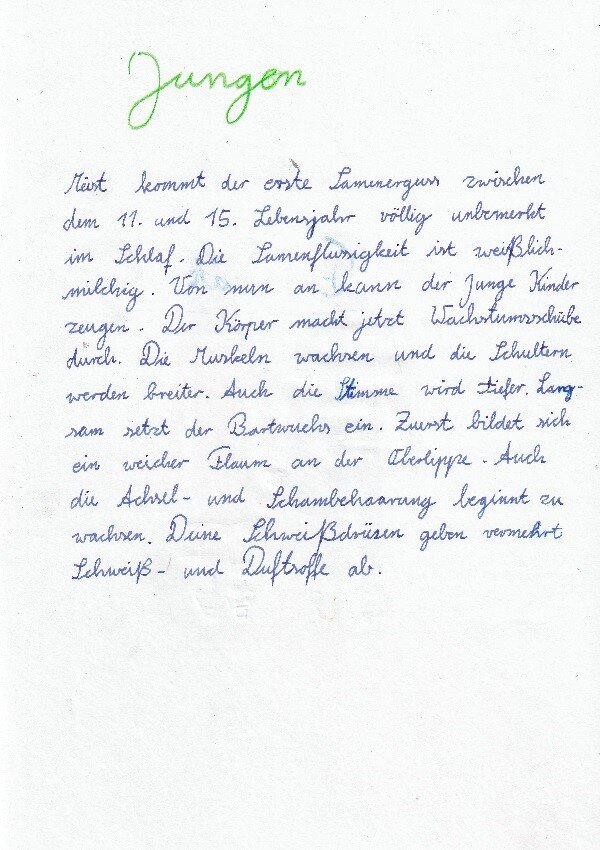 Jungen
Meist kommt der erste Samenerguss zwischen
dem 11. und 15. Lebensjahr völlig unbemerkt
im Schlaf. Die Samenflussigkeit ist weißlich-
milchig. Von nun an kann der Junge Kinder
zeugen. Der Körper macht jetzt Wachstumsschübe
durch. Die Muskeln wachsen und die Schultern
werden breiter. Auch die Stimme wird tiefer. Lang-
sam setzt der Bartwuchs ein. Zuerst bildet sich
ein weicher Flaum an der Oberlippe. Auch
die Achsel- und Schambehaarung beginnt zu
wachsen. Deine Schweißdrüsen geben vermehrt
Schweiß- und Duftsoffe ab.